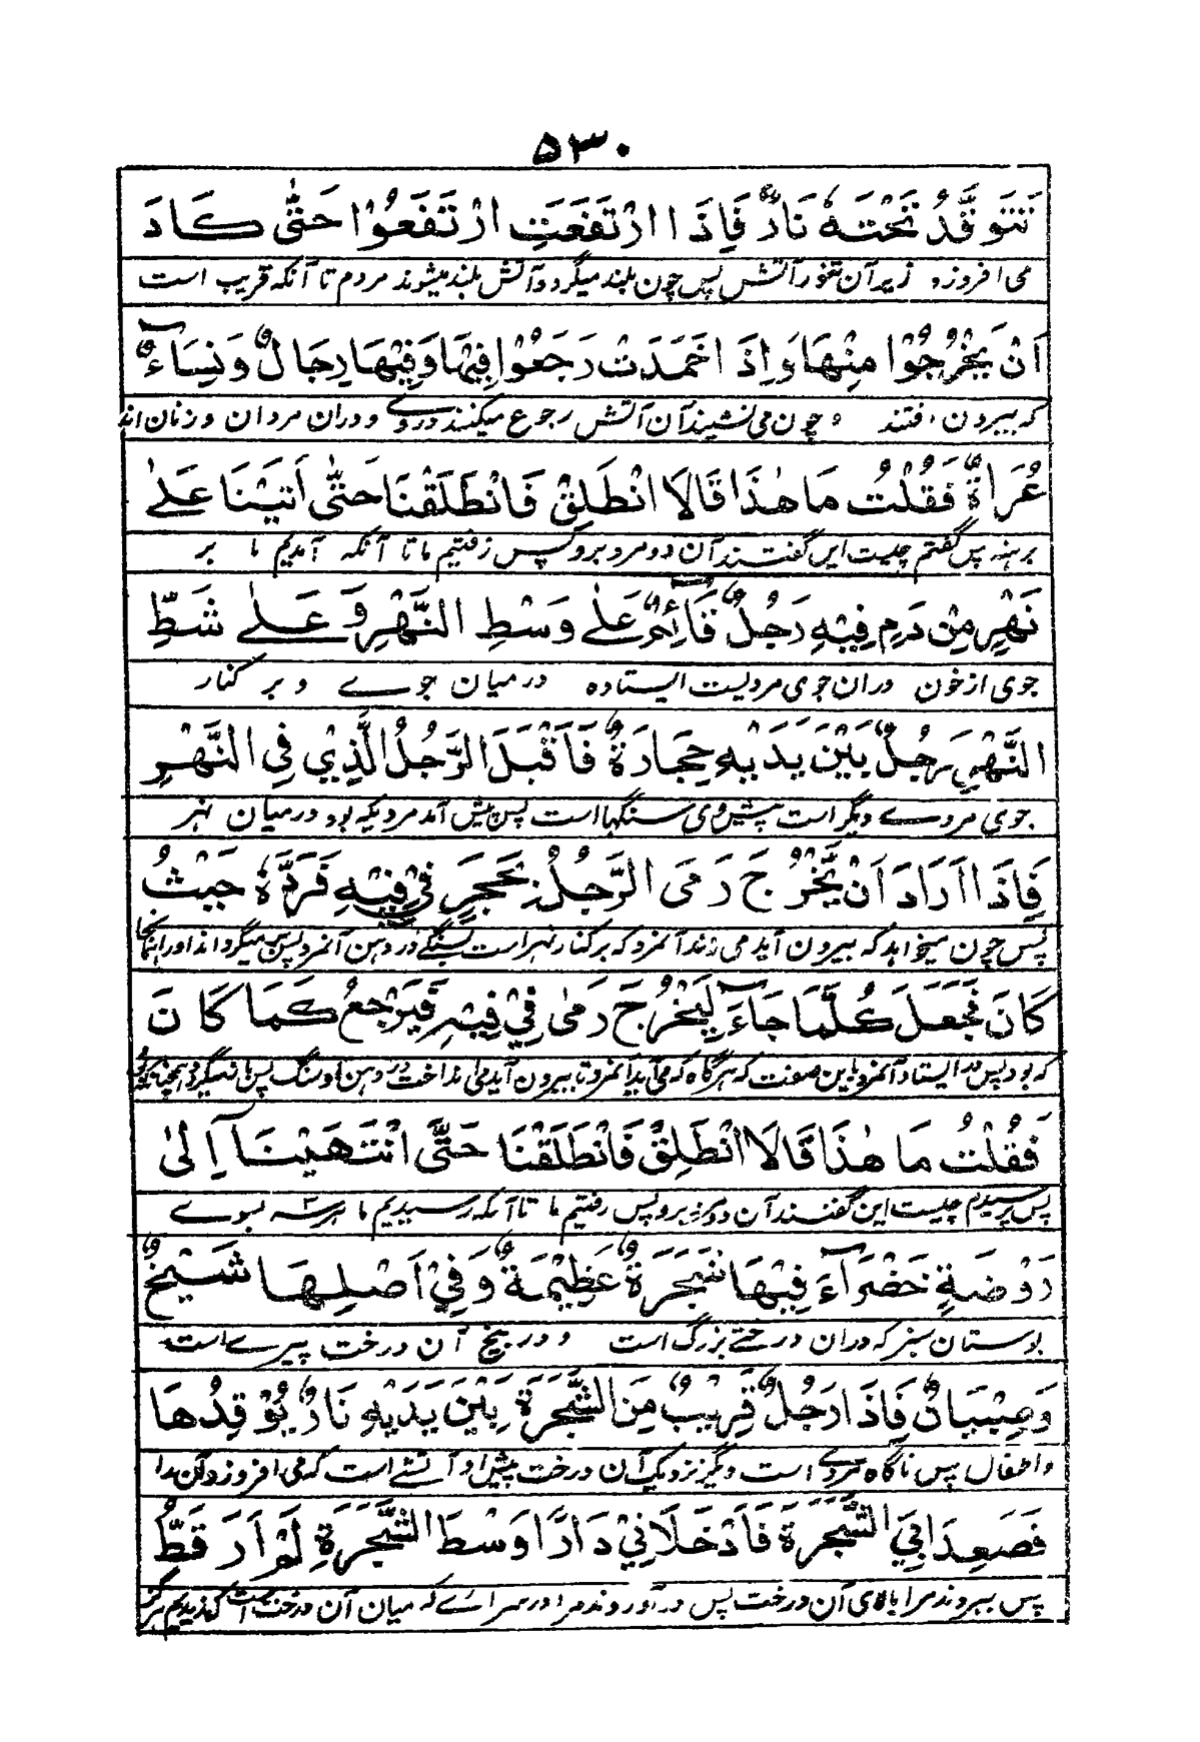 ۵۳۰
تَتَوَقَّدُ تَحْتَهٗ نَارٌ فَاِذَا ارْتَفَعَتِ ارْتَفَعُوْا حَتّٰى كَادَ
می افروزد زیر آن تنور آتش پس چون بلند میگردد آتش بلند میشوند مردم تا آنکه قریب است
اَنْ يَخْرُجُوْا مِنْهَا وَاِذَا خَمَدَتْ رَجَعُوْا فِيْهَا وَفِيْهَا رِجَالٌ وَنِسَاءٌ
که بیرون افتند و چون می نشیند آن آتش رجوع میکنند دروے و دران مردان و زنان اند
عُرَاةٌ فَقُلْتُ مَا هٰذَا قَالَا انْطَلِقْ فَانْطَلَقْنَا حَتّٰى اَتَيْنَا عَلٰى
برهنه پس گفتم چیست این گفتند آن دو مرد برو پس رفتیم ما تا آنکه آمدیم ما بر
نَهْرٍ مِنْ دَمٍ فِيْهِ رَجُلٌ قَائِمٌ عَلٰى وَسْطِ النَّهْرِ وَ عَلٰے شَطِّ
جوی از خون دران جوی مردیست ایستاده در میان جوے و بر کنار
النَّهْرِ رَجُلٌ بَيْنَ يَدَيْهِ حِجَارَةٌ فَاَقْبَلَ الرَّجُلُ الَّذِيْ فِى النَّهْرِ
جوی مردے دیگر است پیش وی سنگها است پس پیش آمد مردیکه بود در میان نهر
فَاِذَا اَرَادَ اَنْ يَّخْرُجَ رَمَى الرَّجُلُ بِحَجَرٍ فِيْ فِيْهِ فَرَدَّهٗ حَيْثُ
پس چون میخواهد که بیرون آید می زند آنمرد که بر کنار نهر است سنگے در دهن آنمرد پس میگرداند اورا آنجا
كَانَ فَجَعَلَ كُلَّمَا جَاءَ لِيَخْرُجَ رَمٰى فِيْ فِيْهِ فَيَرْجِعُ كَمَا كَانَ
که بود پس در ایستاد آنمرد باین صورت که هرگاه که می آید آنمرد تا بیرون آید می انداخت در دهن او سنگ پس باز میگردد
فَقُلْتُ مَا هٰذَا قَالَا انْطَلِقْ فَانْطَلَقْنَا حَتَّى انْتَهَيْنَا اِلٰى
پس پرسیدم چیست این گفتند آن دو مرد برو پس رفتیم ما تا آنکه رسیدیم ما هر سه بسوے
رَوْضَةٍ خَضْرَاءَ فِيْهَا شَجَرَةٌ عَظِيْمَةٌ وَفِيْ اَصْلِهَا شَيْخٌ
بوستان سبز که دران درختے بزرگ است و در بیخ آن درخت پیرے است
وَصِبْيَانٌ فَاِذَا رَجُلٌ قَرِيْبٌ مِنَ الشَّجَرَةِ بَيْنَ يَدَيْهِ نَارٌ يُوْقِدُهَا
و اطفال پس ناگاه مردے است دیگر نزدیک آن درخت پیش او آتشے است که می افروزد آن را
فَصَعِدَا بِيَ الشَّجَرَةَ فَاَدْخَلَانِيْ دَارًا وَسْطَ الشَّجَرَةِ لَمْ اَرَ قَطُّ
پس ببردند مرا بالای آن درخت پس در آوردند مرا در سراے که میان آن درخت است که ندیدم هرگز